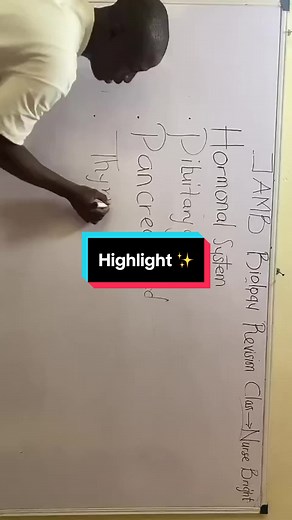 JAMB Biology Revision Class → Nurse Bright
Hormonal System
• Pituitary
• Pancrea
• Thy
Highlight ✨